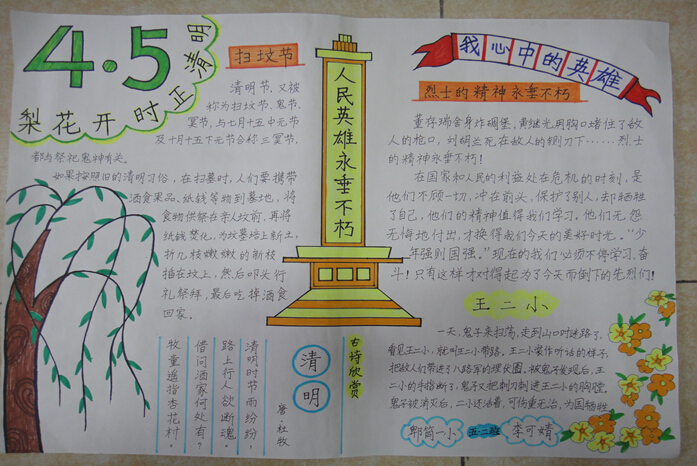 4·5
梨花开时正清明
扫坟节
清明节，又被
称为扫坟节、鬼节、
冥节，与七月十五中元节
及十月十五下元节合称三冥节，
都与祭祀鬼神有关。
如果按照旧的清明习俗，在扫墓时，人们要携带
酒食果品、纸钱等物到墓地，将
食物供祭在亲人坟前，再将
纸钱焚化，为坟墓培上新土，
折几枝嫩嫩的新枝
插在坟上，然后叩头行
礼祭拜，最后吃掉酒食
回家。
人民英雄永垂不朽
古诗欣赏
清明
唐·杜牧
清明时节雨纷纷，
路上行人欲断魂。
借问酒家何处有？
牧童遥指杏花村。
我心中的英雄
烈士的精神永垂不朽
董存瑞舍身炸碉堡，黄继光用胸口堵住了敌
人的枪口，刘胡兰死在敌人的铡刀下……烈士
的精神永垂不朽！
在国家和人民的利益处在危机的时刻，是
他们不顾一切，冲在前头，保护了别人，却牺牲
了自己，他们的精神值得我们学习。他们无怨
无悔地付出，才换得我们今天的美好时光。“少
年强则国强。”现在的我们必须不停学习，奋
斗！只有这样才对得起为了今天而倒下的先烈们！
王二小
一天，鬼子来扫荡，走到山口时迷路了，
看见王二小，就叫王二小带路。王二小装作听话的样子，
把敌人带进了八路军的埋伏圈。被鬼子发现后，王
二小的手指断了，鬼子又把刺刀刺进王二小的胸膛。
鬼子被消灭后，二小还活着，可伤重无治，为国牺牲
郸简一小
五·二班
李可婧